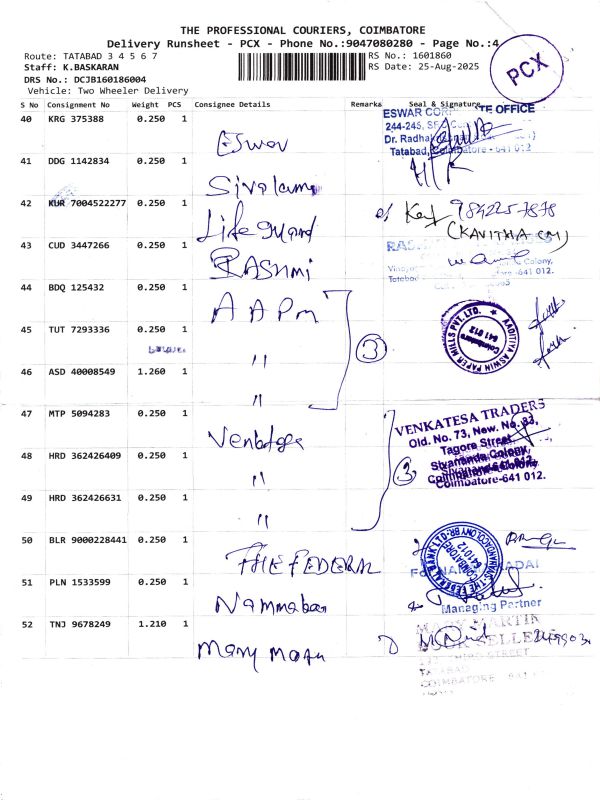 THE PROFESSIONAL COURIERS, COIMBATORE
Delivery Runsheet - PCX - Phone No.:9047080280 - Page No.:4
Route: TATABAD 3 4 5 6 7
RS No.: 1601860
Staff: K.BASKARAN
RS Date: 25-Aug-2025
DRS No.: DCJB160186004
Vehicle: Two Wheeler Delivery
PCX
S No Consignment No Weight PCS Consignee Details Remarks Seal & Signature
40 KRG 375388 0.250 1
Eswar
ESWAR CORPORATE OFFICE
244-245,
Dr. Radhakrishnan
Tatabad, Coimbatore - 641 012
41 DDG 1142834 0.250 1
42 KUR 7004522277 0.250 1
Life guard
9842257878
(KAVITHA CM)
43 CUD 3447266 0.250 1
RASHMI
Colony,
Tatabad 641 012.
44 BDQ 125432 0.250 1
AAPM
45 TUT 7293336 0.250 1
"
3
AADITYA ASWIN PAPER MILLS PVT. LTD.
Coimbatore
641 012
46 ASD 40008549 1.260 1
"
47 MTP 5094283 0.250 1
VENKATESA TRADERS
Old. No. 73, New. No. 33,
Tagore Street
Sivananda Colony
Coimbatore-641 012.
48 HRD 362426409 0.250 1
"
3
49 HRD 362426631 0.250 1
"
50 BLR 9000228441 0.250 1
THE FEDERAL
THE FEDERAL BANK LTD.
COIMBATORE
641012
51 PLN 1533599 0.250 1
Managing Partner
52 TNJ 9678249 1.210 1
Mary Martin
MARY MARTIN
BOOK SELLERS
STREET
TATABAD
COIMBATORE 641